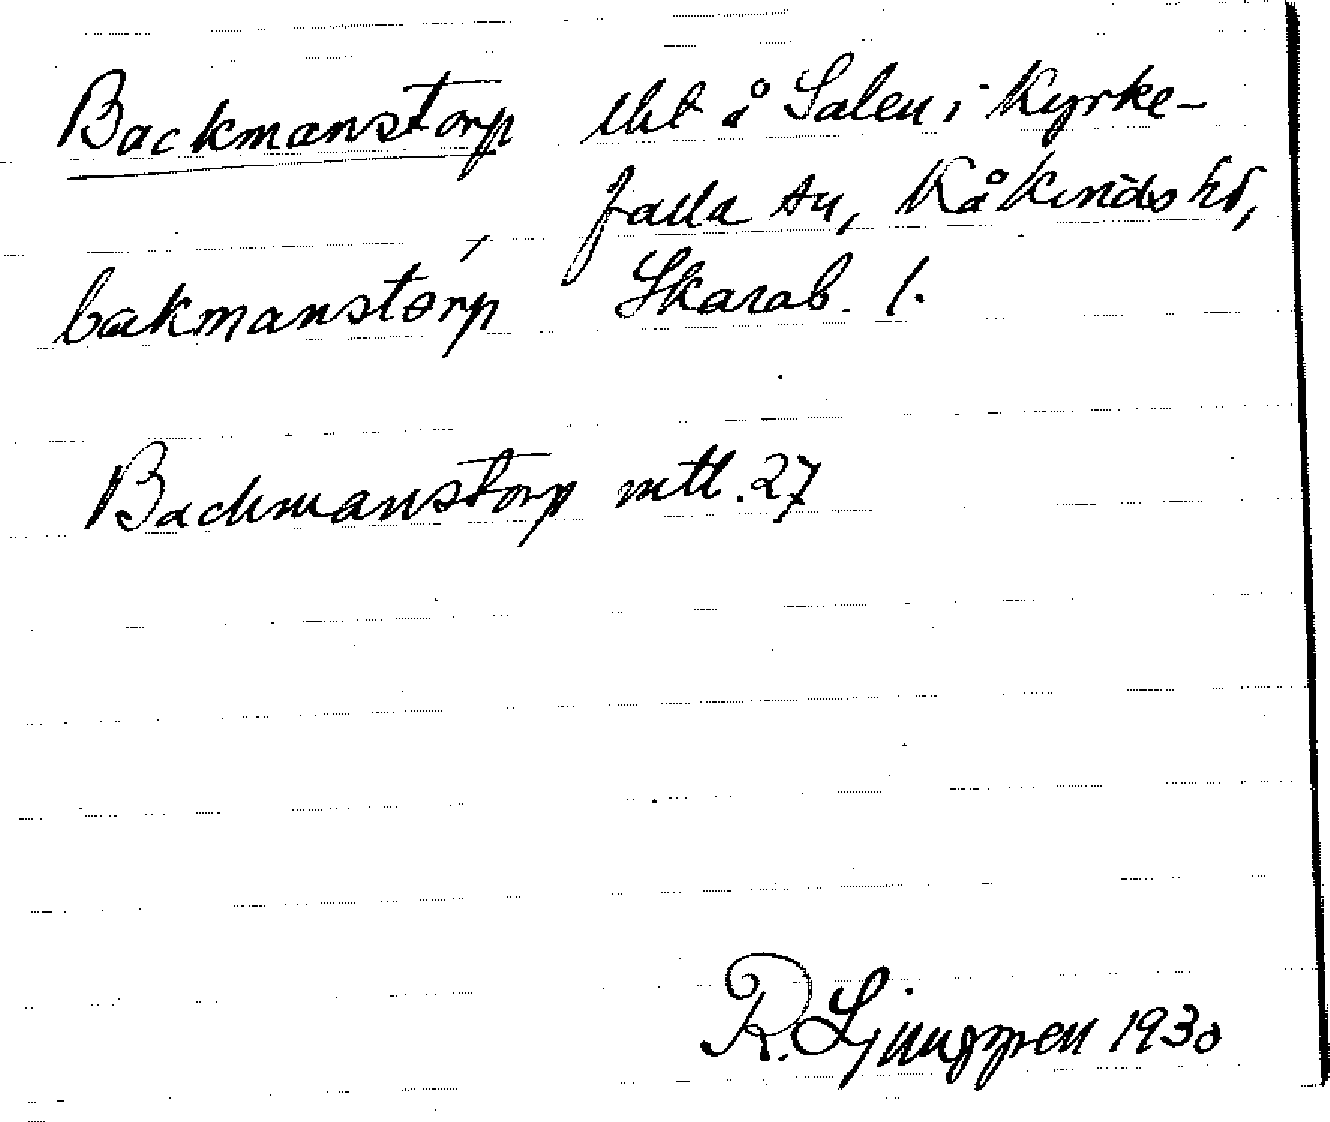 Backmanstorp tht å Salen i Kyrke-
falla sn, Kåkinds hd,
bakmanstórp Skarab. l.
Backmanstorp mtl. 27
R. Ljunggren 1930